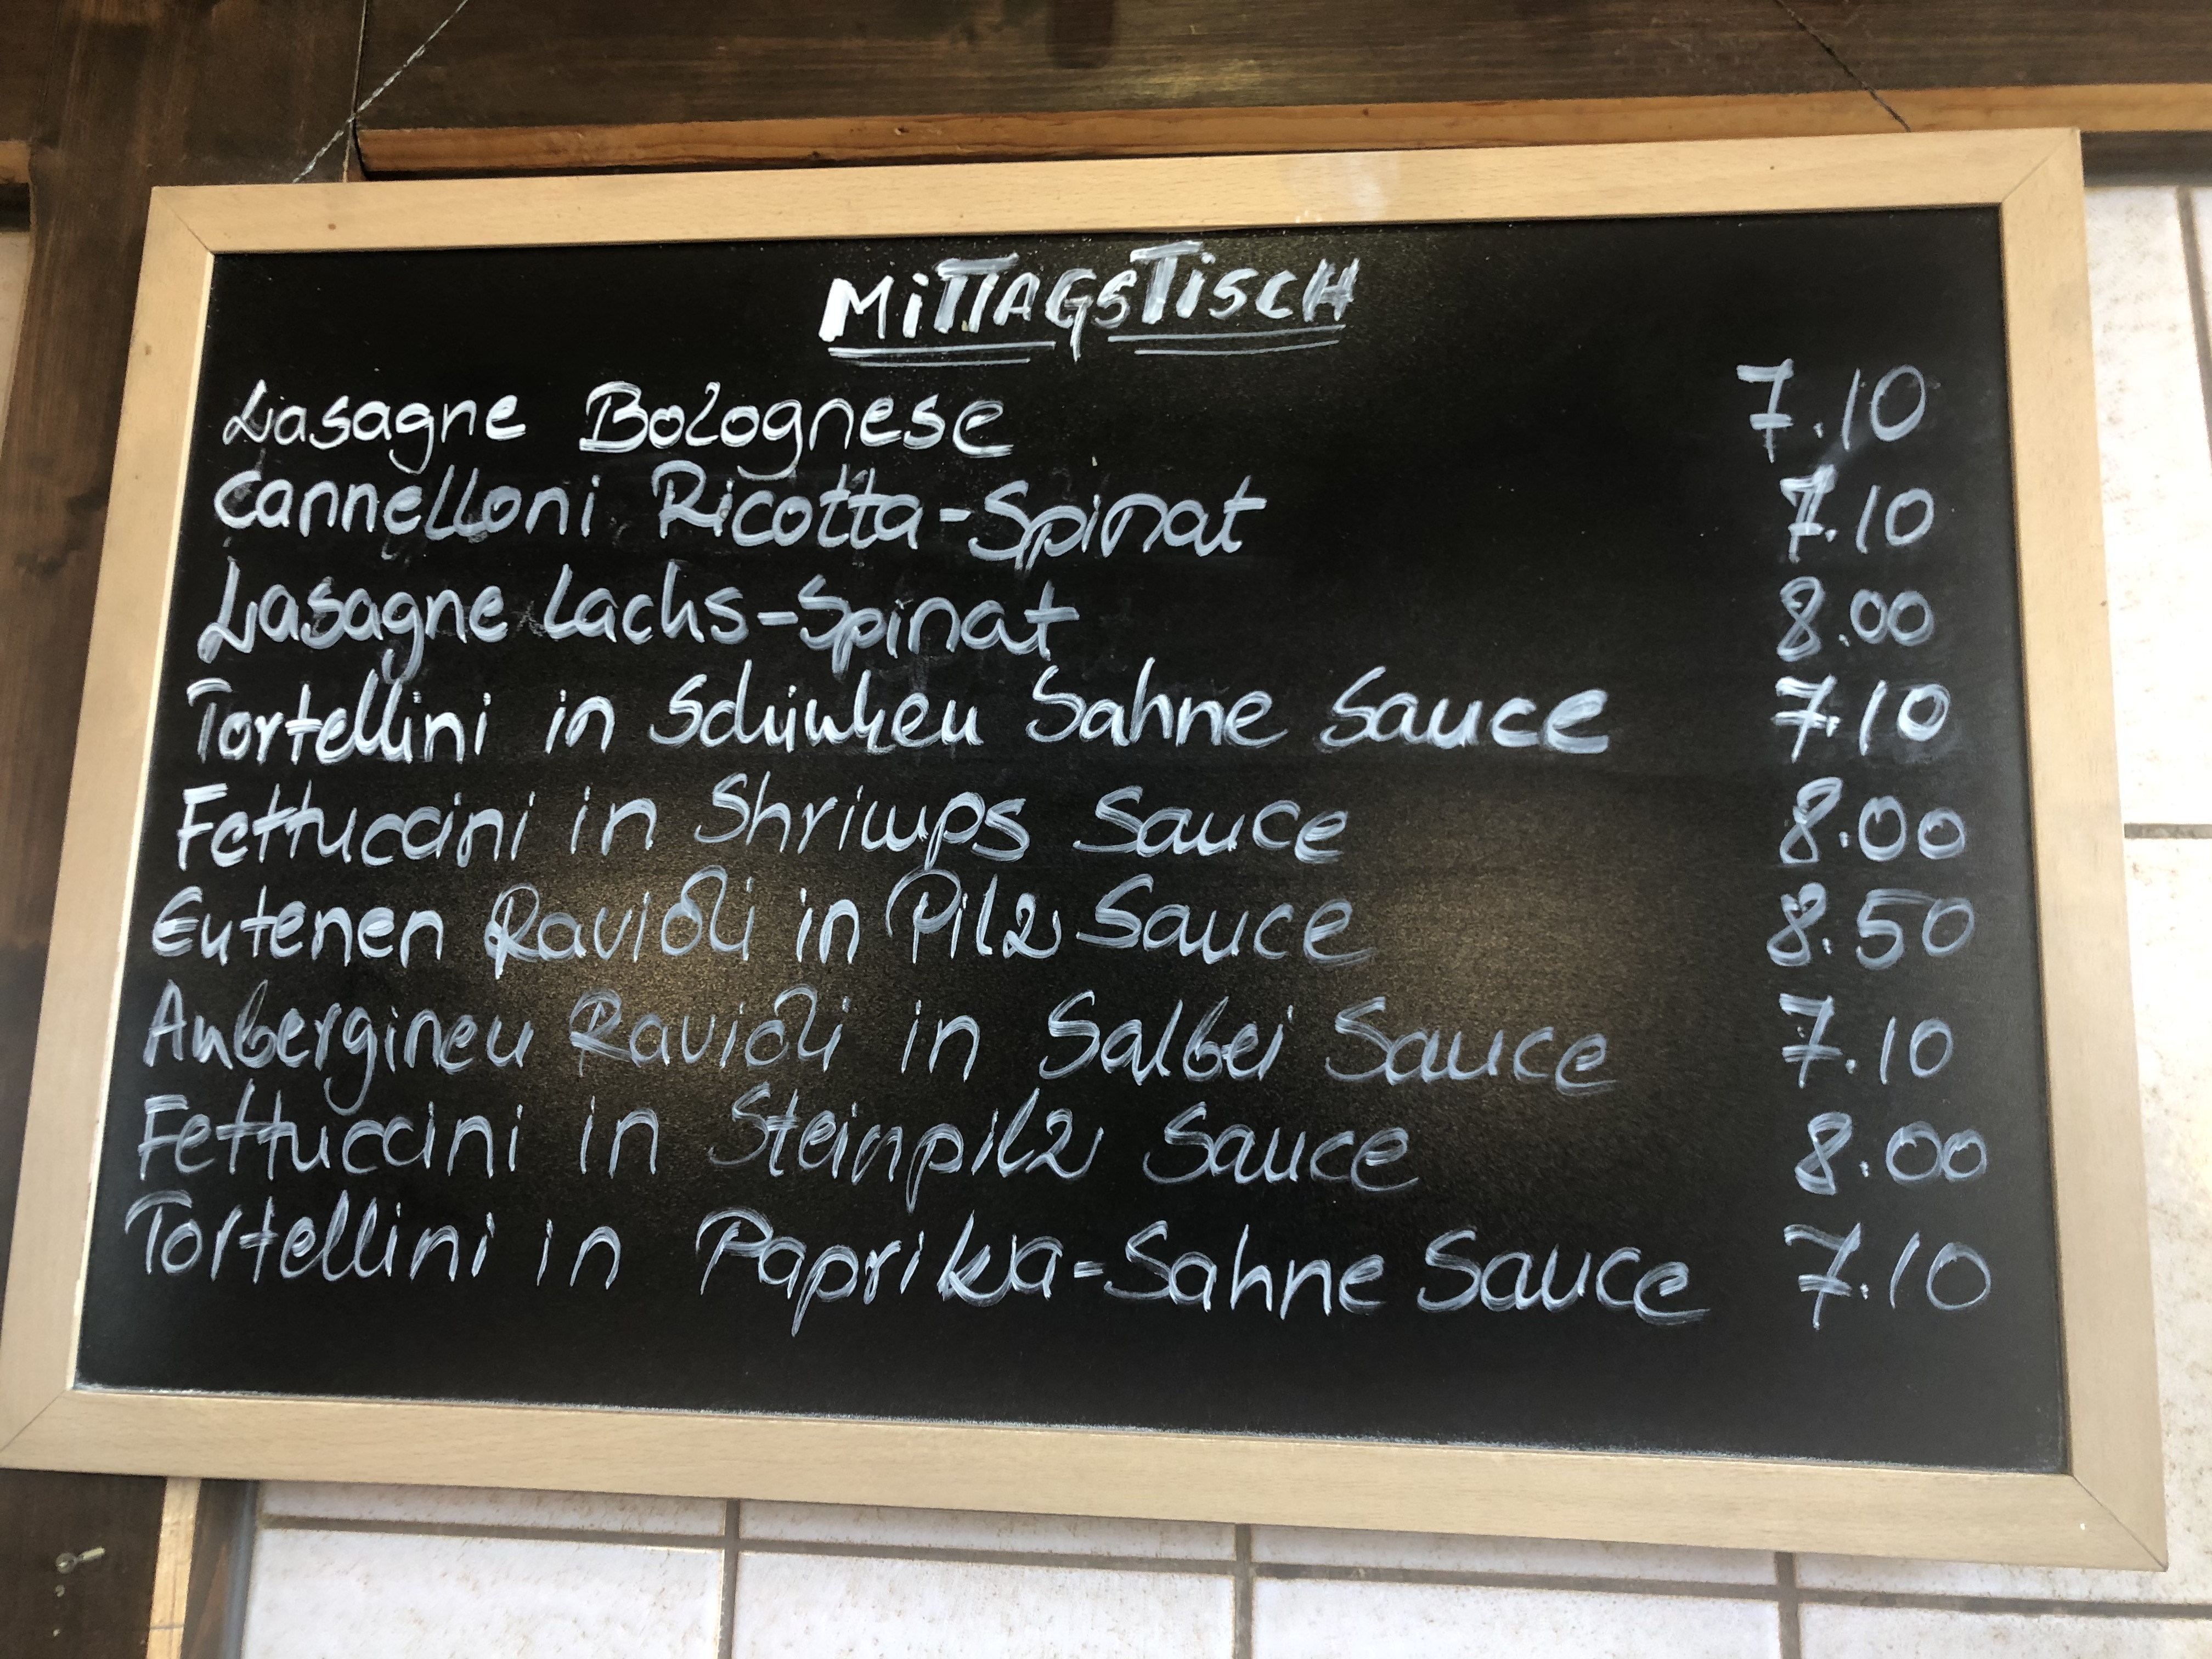 MiTTAGSTiSCH
Lasagne Bolognese 7.10
Cannelloni Ricotta-Spinat 7.10
Lasagne Lachs-Spinat 8.00
Tortellini in Schinken Sahne Sauce 7.10
Fettuccini in Shrimps Sauce 8.00
Entenen Ravioli in Pilz Sauce 8.50
Auberginen Ravioli in Salbei Sauce 7.10
Fettuccini in Steinpilz Sauce 8.00
Tortellini in Paprika-Sahne Sauce 7.10